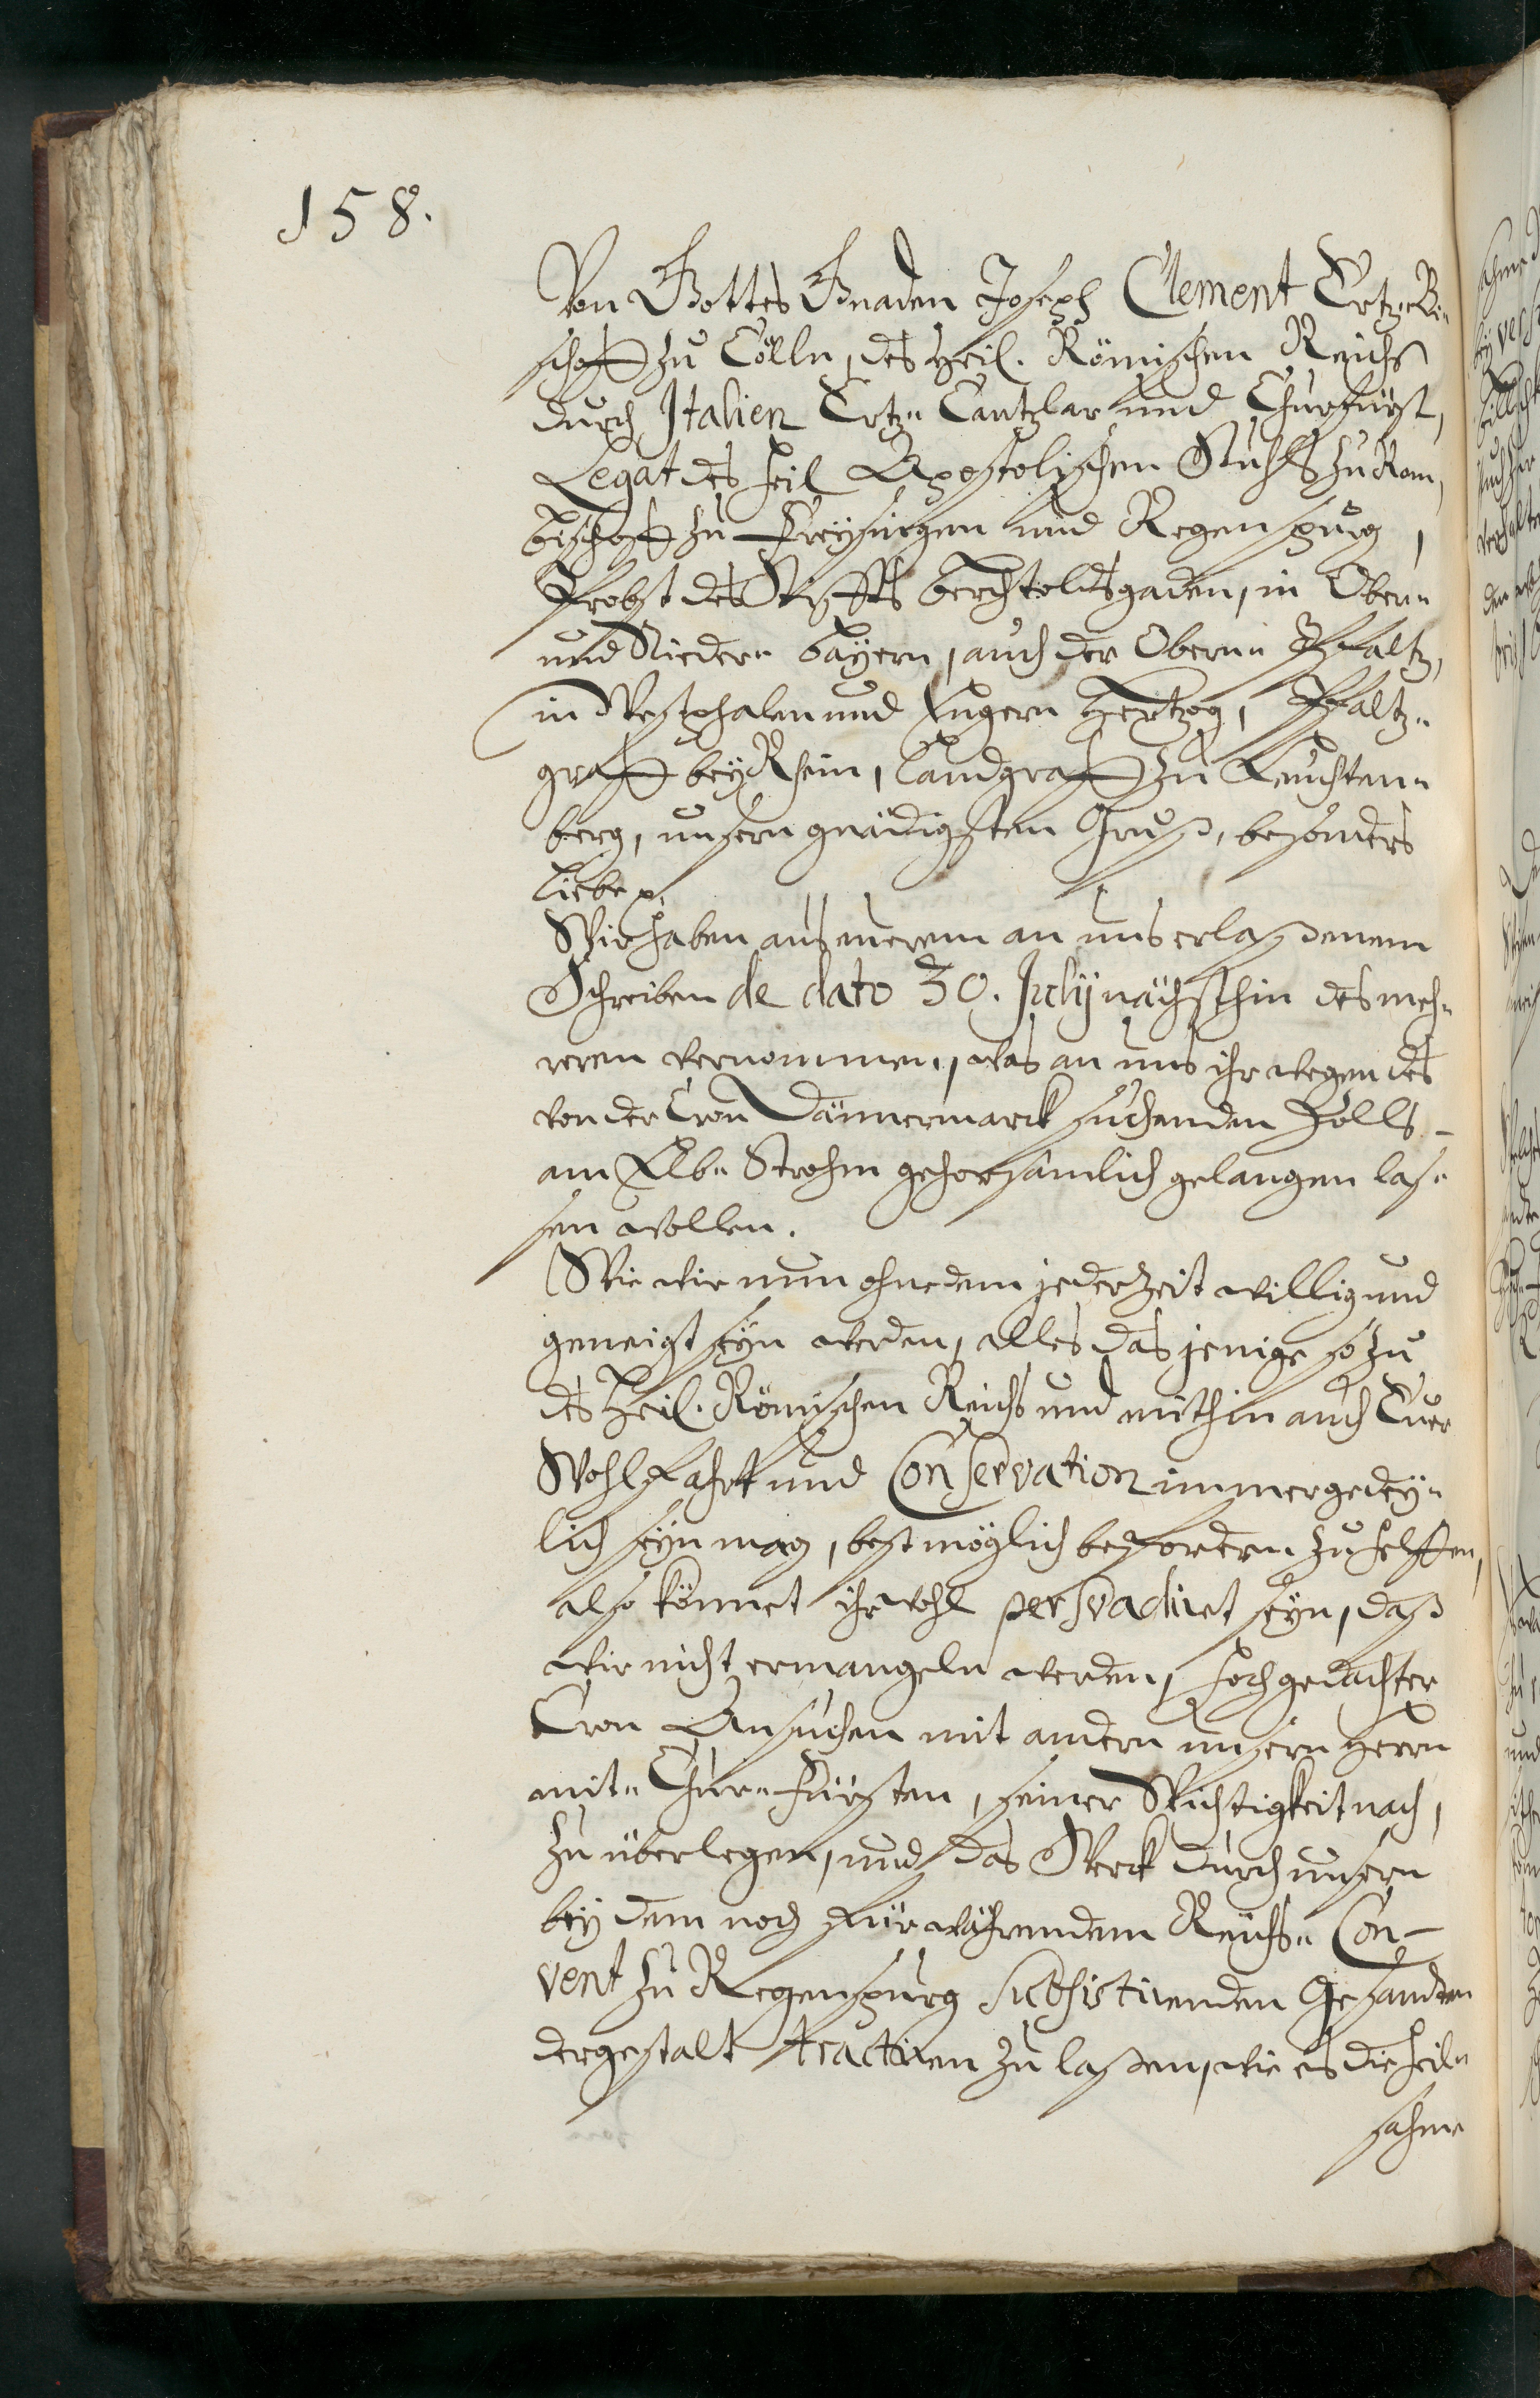 158.
Von Gottes Gnaden Joseph Clement Ertz-Bi-
schoff zu Cölln, des Heil. Römischen Reichß
durch Italien Ertz- Cantzlar und Churfürst,
Legat des heil Apostolischen Stuhls zu Rom,
Bischoff zu Freysingen und Regenspurg,
Probst des Stiffts Berchtoldsgaden, in Obern-
und Niedern- Bayern, auch der Obern- Pfaltz,
in Westphalen und Engern Hertzog, Pfaltz-
graff bey Rhein, Landgraff zu Leuchten-
berg, unsern gnädigsten Gruß, besonders
Liebe p.
Wir haben aus eurem an uns erlaßenem
Schreiben de dato 30. Julij nächsthin des meh-
reren vernommen, was an uns ihr wegen des
von der Cron Dännemarck suchenden Zolls
am Elb- Strohm gehorsamlich gelangen las-
sen wollen.
Wie wir nun ohne dem jederzeit willig und
geneigt seyn werden, alles das jenige so zu
des Heil. Römischen Reichs und mithin auch Euer
Wohlfahrt und Conservation immer gedey-
lich seyn mag, best möglich befordern zu helffen,
also könnet ihr wohl persvadiret seyn, daß
wir nicht ermangeln werden, hochgedachter
Cron Ansuchen mit andern unsern Herrn
mit- Chur-Fürsten, seiner Wichtigkeit nach,
zu überlegen, und das Werck durch unsern
bey dem noch fürwährendem Reichs- Con-
vent zu Regenspurg subsistirenden Gesandten
dergestalt tractiren zu laßen, wie es die heil-
sahme